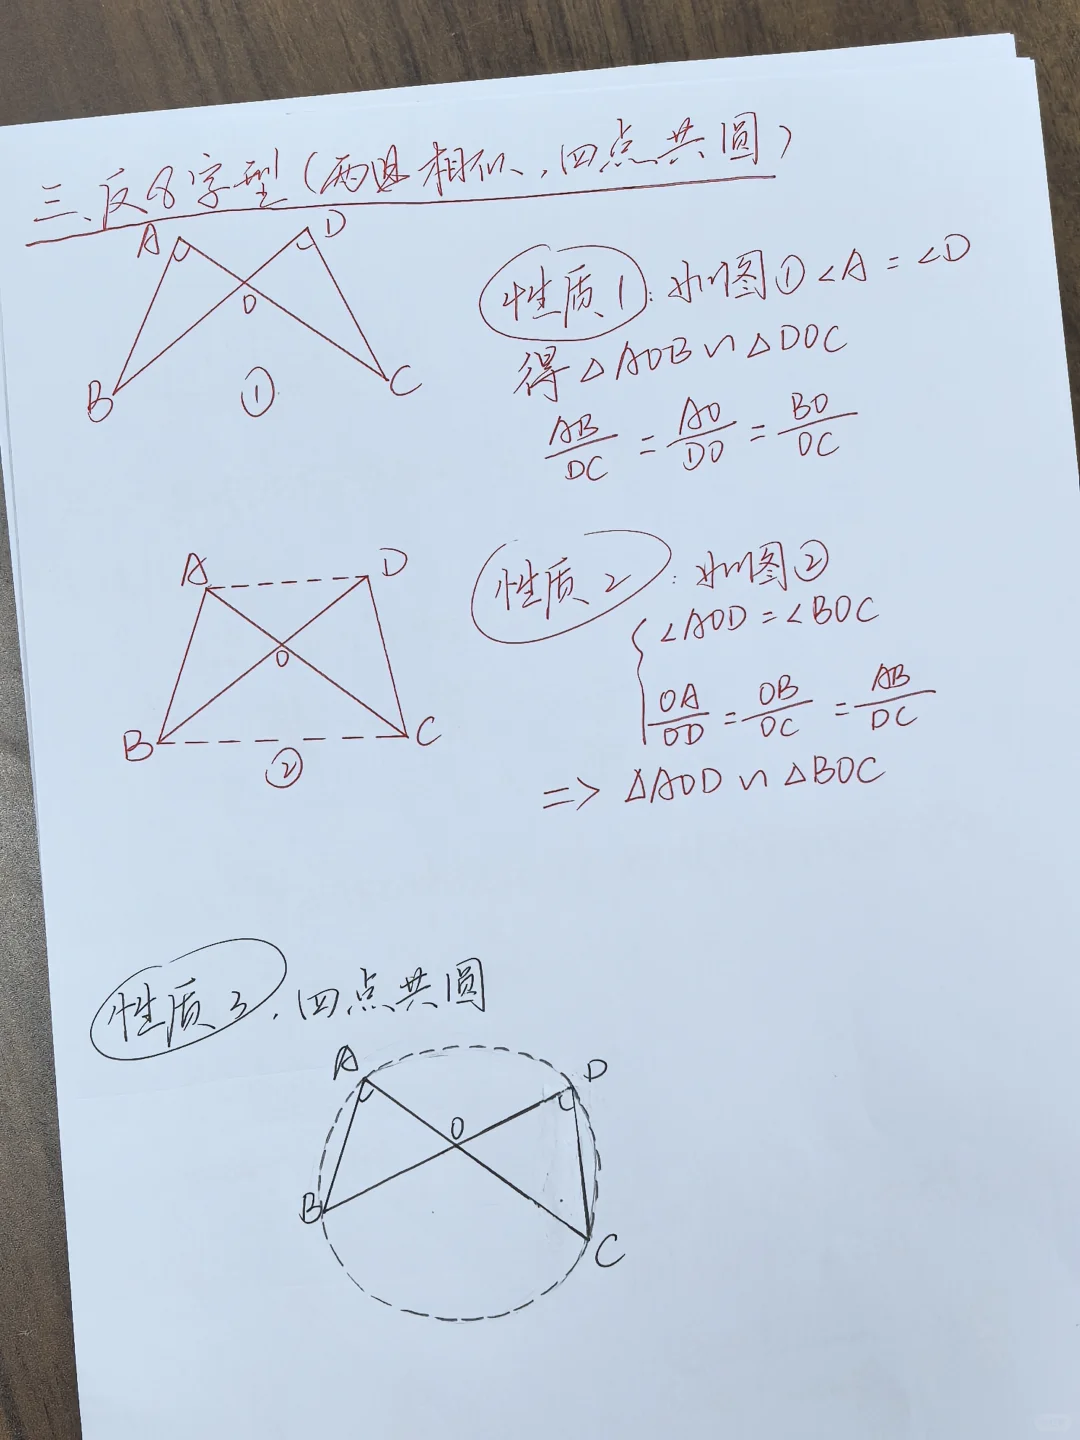 三、反8字型(两组相似、四点共圆)
A
D
O
B
C
①
性质1: 如图①∠A=∠D
得△AOB∽△DOC
AB/DC = AO/DO = BO/OC
A
D
O
B
C
②
性质2: 如图②
∠AOD=∠BOC
OA/OD = OB/OC = AB/DC
=> △AOD∽△BOC
性质3、四点共圆
A
D
O
B
C